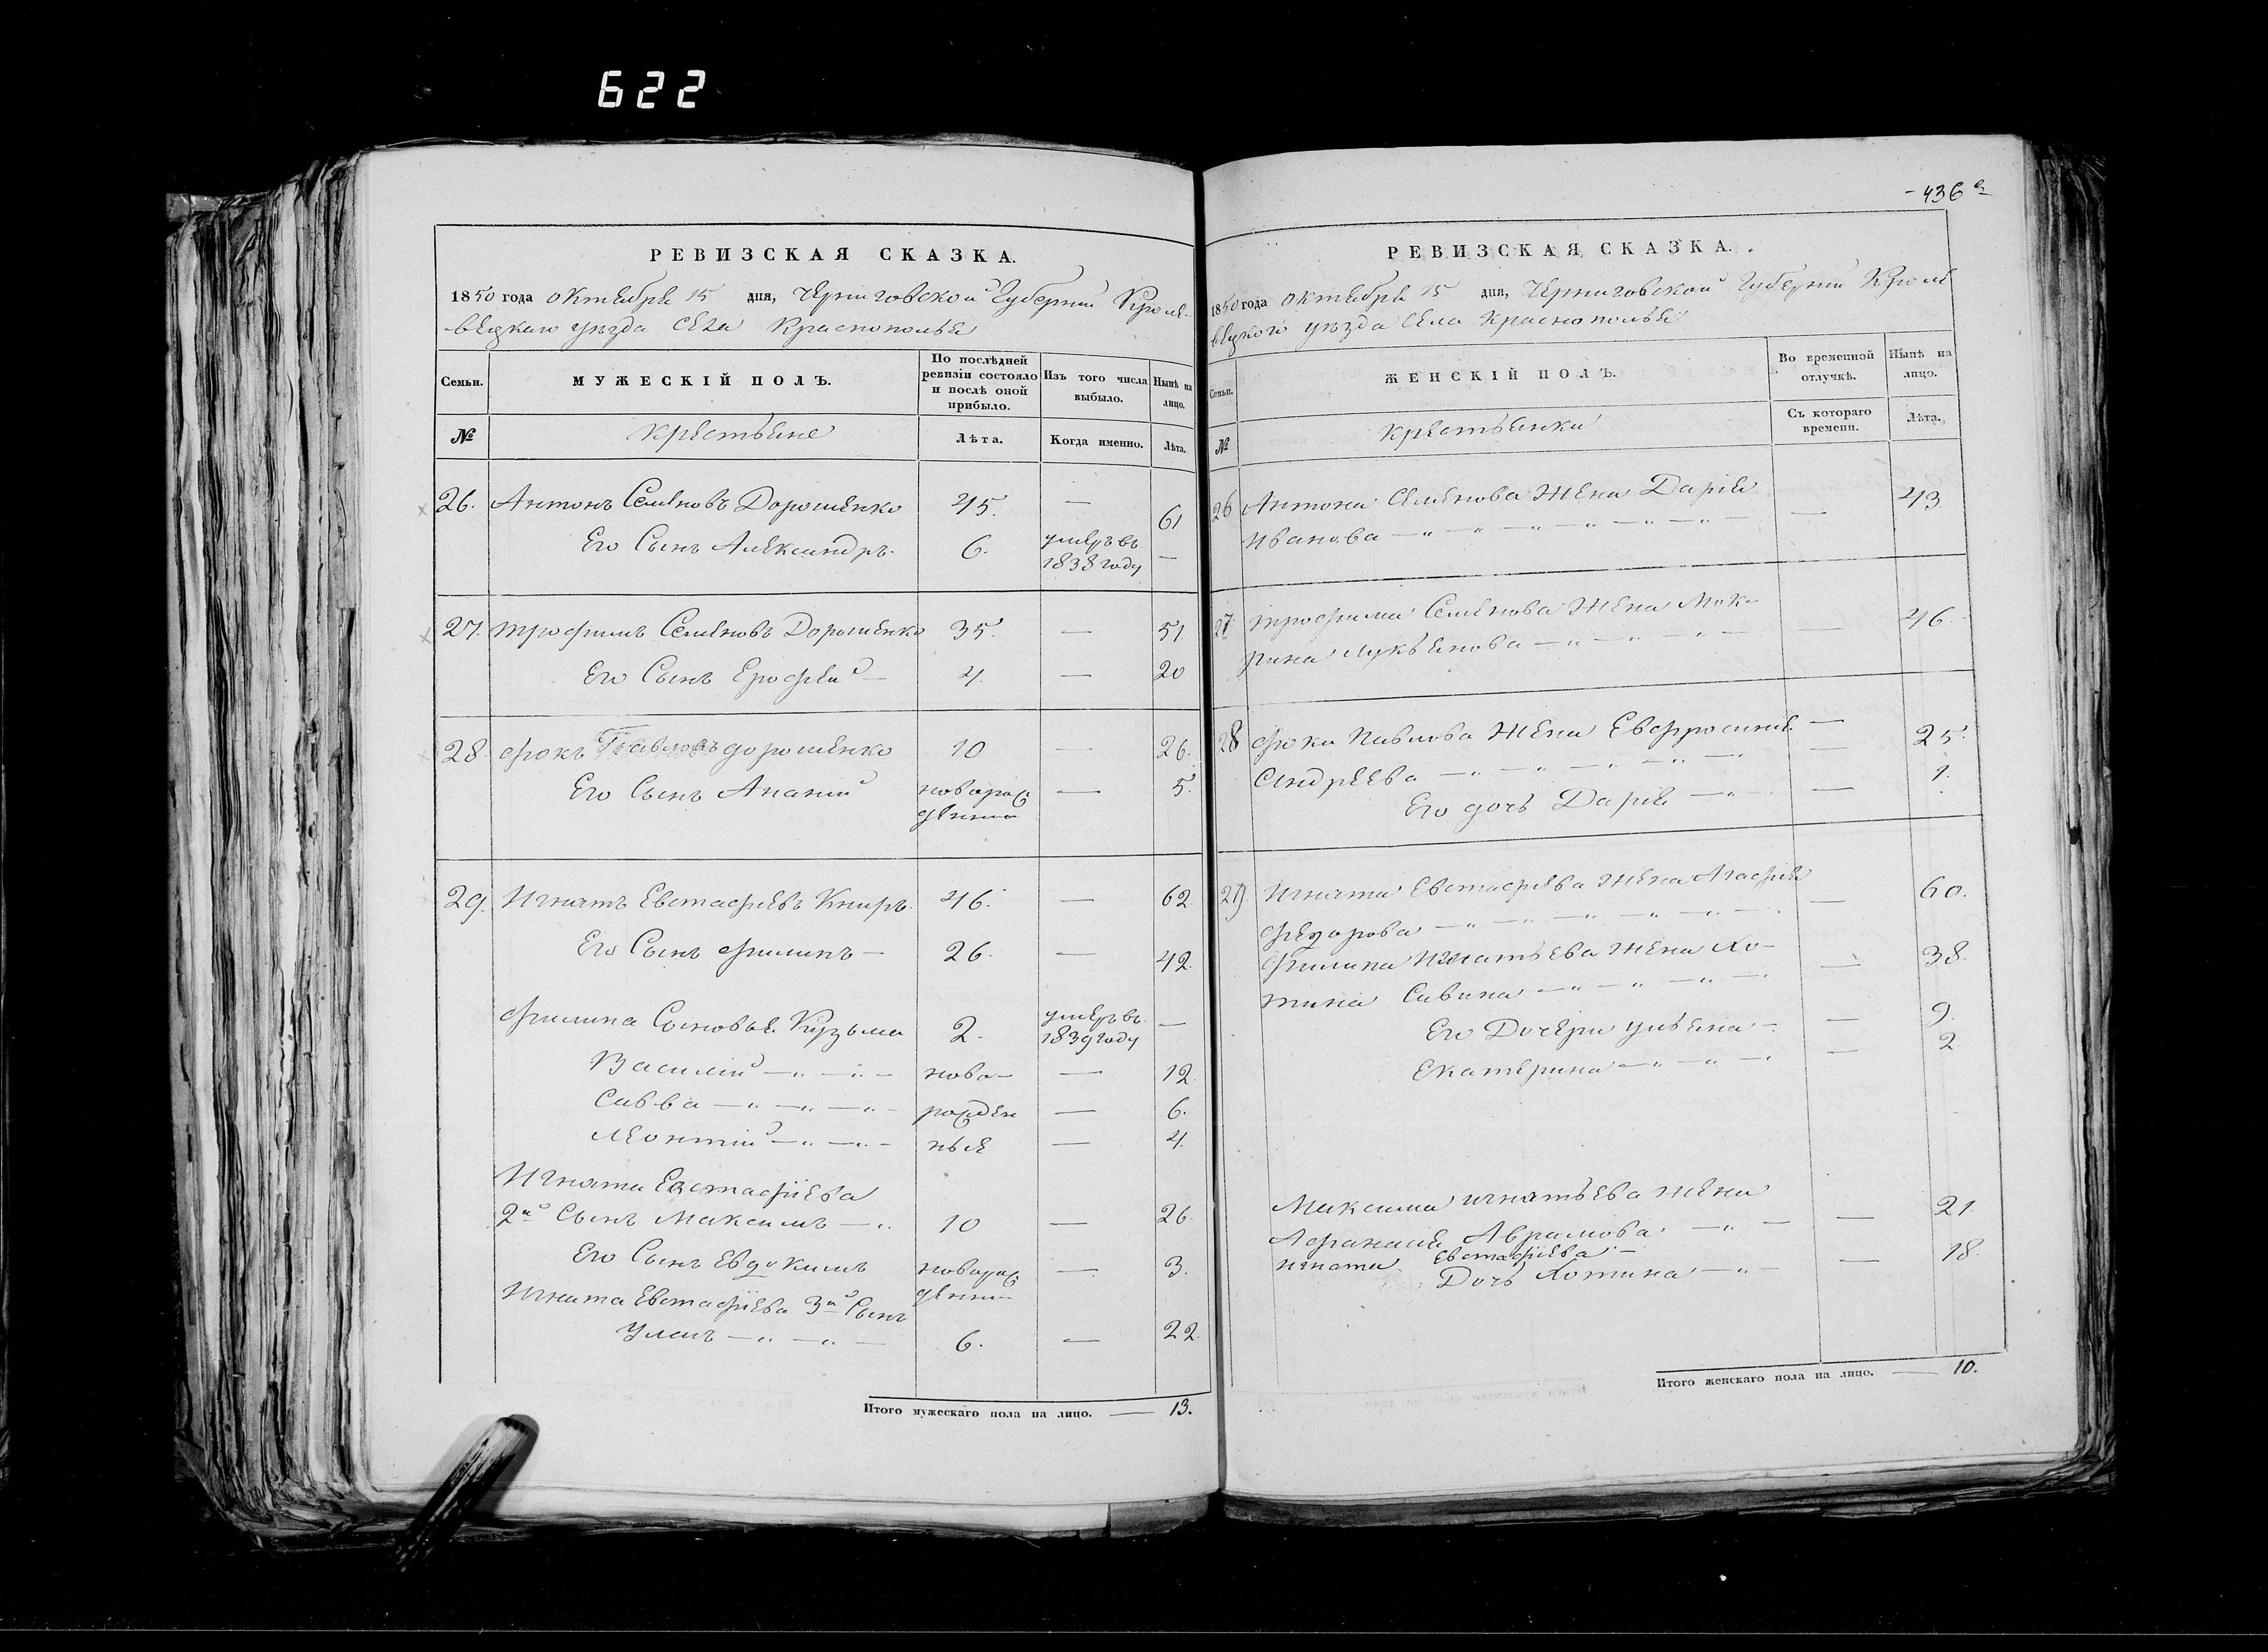 622
РЕВИЗСКАЯ СКАЗКА.
1850 года октября 15 дня, Черниговской Губернии Кроле-
вецкаго уезда села Краснополья
Семьи.
МУЖЕСКІЙ ПОЛЪ.
По послѣдней ревизіи состояло и послѣ оной прибыло.
Изъ того числа выбыло.
Нынѣ на лицо.
№
Крестьяне
Лѣта.
Когда именно.
Лѣта.
26. Антонъ Семеновъ Дорошенко 45. — 61
Его Сынъ Александръ. 6. умеръ въ 1838 году —
27. Трофимъ Семеновъ Дорошенко 35. — 51
Его Сынъ Ерофей — 4. — 20
28. Фокъ Павловъ дорошенко 10 — 26.
Его Сынъ Ананий новорож
денны — 5.
29. Игнатъ Евстафіевъ Книръ. 46. — 62.
Его Сынъ Филипъ — 26. — 42.
Филипа Сыновья Кузьма 2. умеръ въ 1839 году —
Василій —„— ново- — 12
Савва —„— рожден — 6.
Леонтій —„— ные — 4.
Игната Евстафіева
2й Сынъ Максимъ —„ 10 — 26.
Его Сынъ Евдокимъ новорож
денны — 3.
Игната Евстафіева 3й Сынъ
Уласъ —„— 6. — 22.
Итого мужескаго пола на лицо. — 13.
- 436
РЕВИЗСКАЯ СКАЗКА.
1850 года октября 15 дня, Черниговской Губернии Кроле
вецкого уезда села Краснополья
Семьи.
ЖЕНСКІЙ ПОЛЪ.
Во временной отлучкѣ.
Нынѣ на лицо.
№
Крестьянки
Съ котораго времени.
Лѣта.
26 Антона Семенова Жена Дарія
Иванова —„— — 43
27 Трофима Семенова Жена Мок-
рина Лукьянова —„— — 46.
28 Фоки Павлова Жена Евфросиния — 25.
Андреева —„— —
Его дочь Дарія —„— — 1.
29 Игната Евстафіева Жена Агафия
Федорова —„— — 60.
Филипа Игнатьева Жена Хо-
тина Савина —„— — 38.
Его Дочери Ульяна — — 9.
Екатерина —„— — 2
Максима игнатьева жена
Афанасия Аврамова —„— — 21.
игната Евстафіева —
Дочь Хотина —„— — 18.
Итого женскаго пола на лицо. — 10.